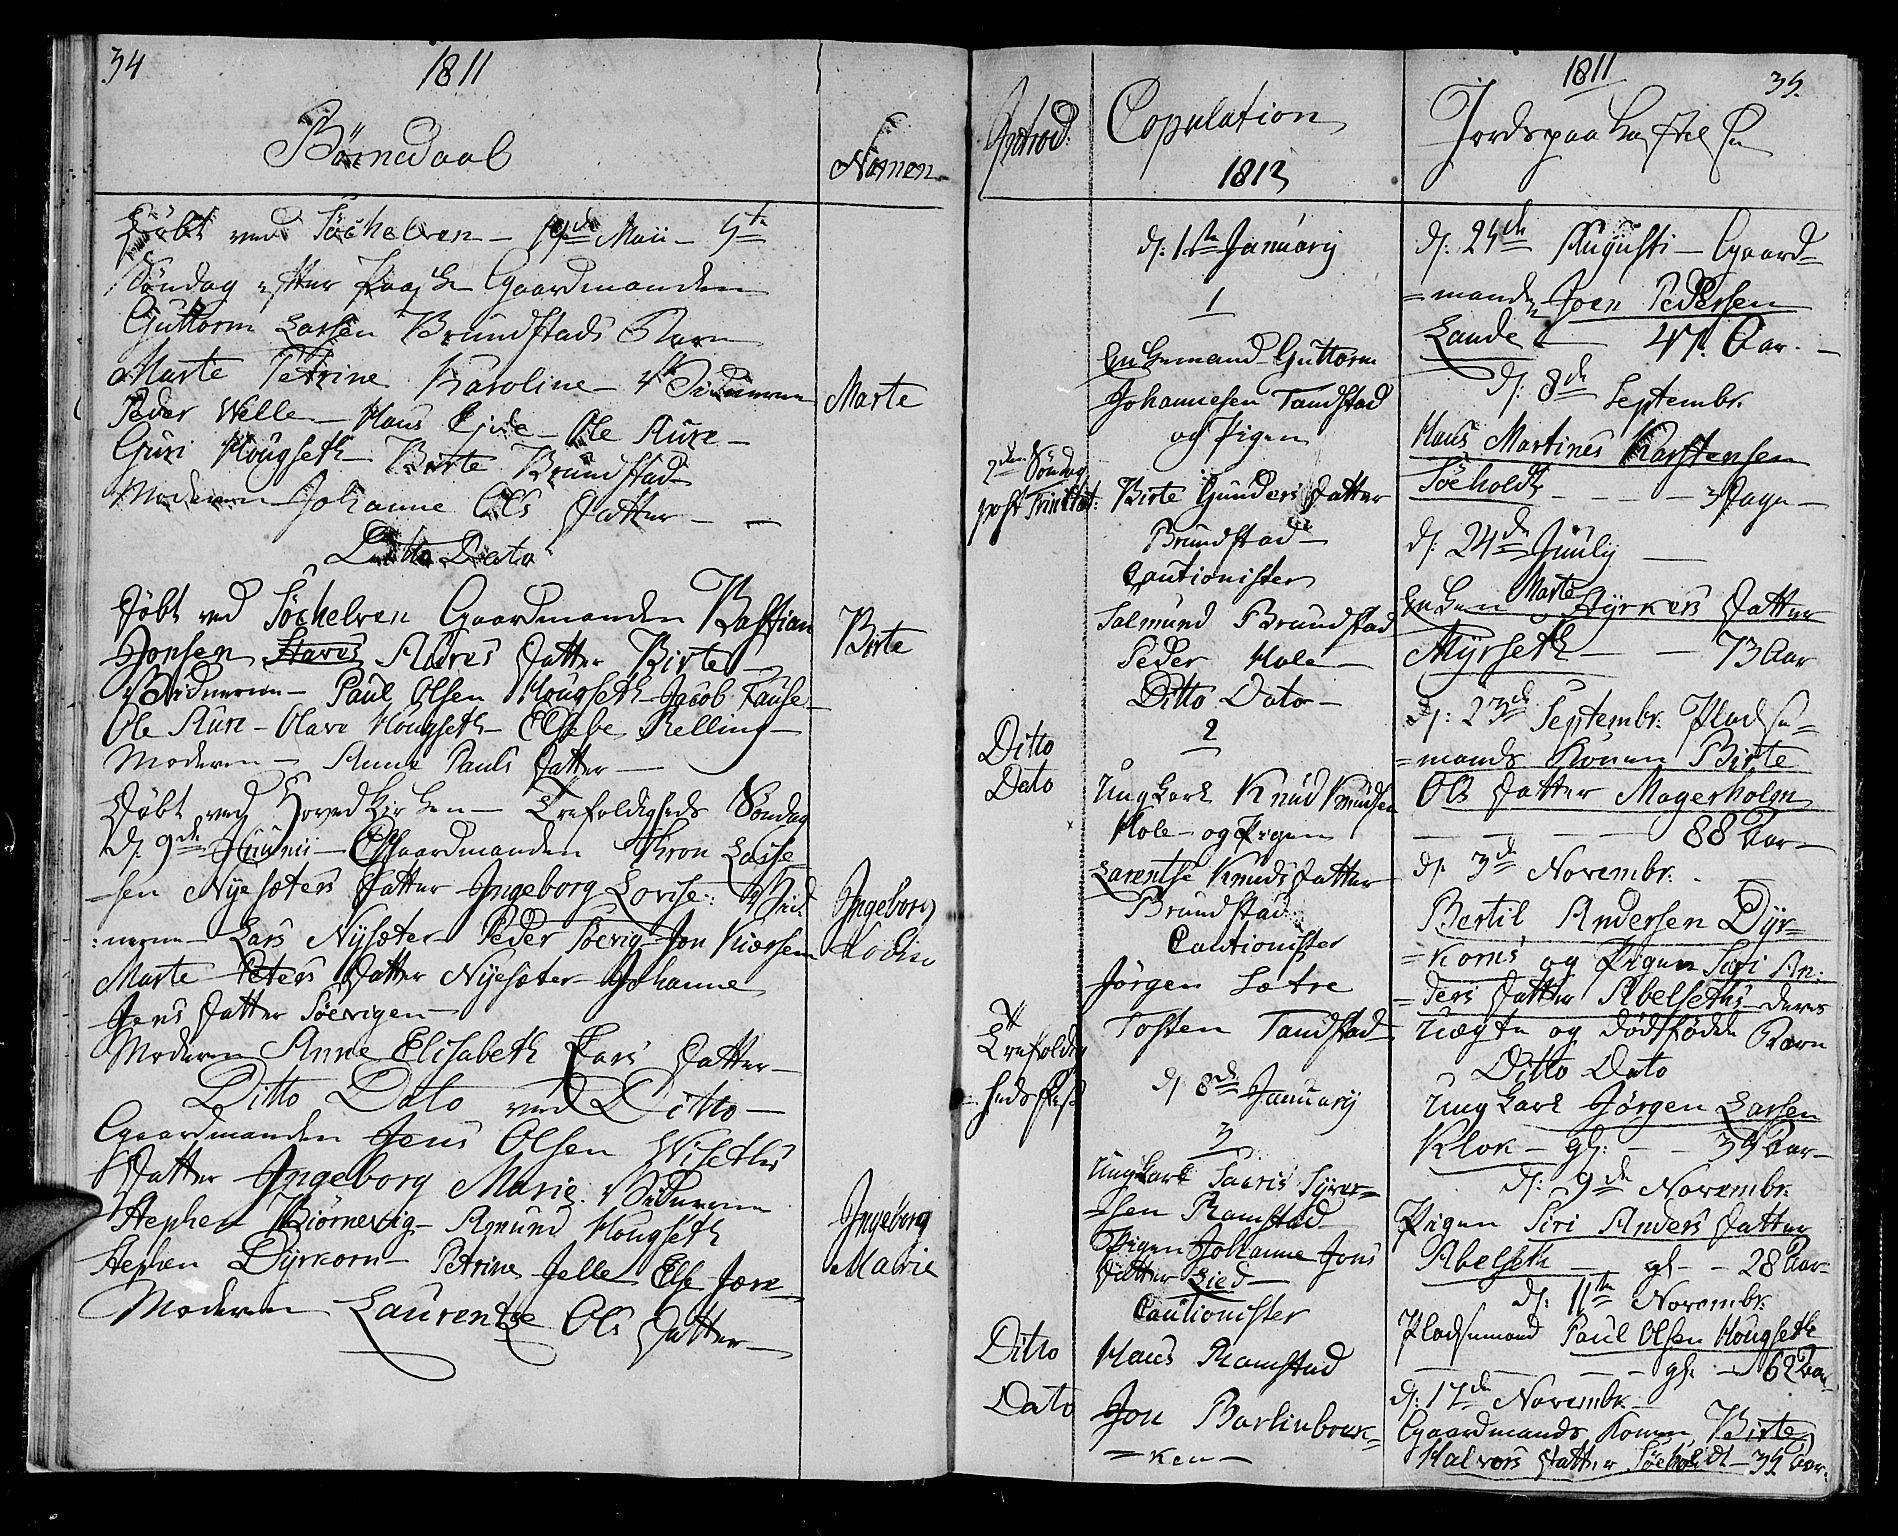 34
1811
Börnedaab
Nafnen
Döbt ved Söchelven - 19de Maii - 5te
Söndag efter Paaske Gaardmanden
Guttorm Larsen Brundstads Barn
Marte Petrine Karoline - Vidnerne
Peder Welle - Hans Ejde - Ole Aure -
Guri Hougseth - Birte Brundstad
Moderen Johanne Ols Datter -
Marte
Ditto Dato
Döbt ved Söchelven Gaardmanden Bastian
Jonsen Aures Datter Birte -
Vidnerne - Paul Olsen Hougseth - Jacob Fause -
Ole Aure - Olave Hougseth - Elsebe Relling -
Moderen - Anne Pauls Datter -
Birte
Döbt ved Hovedkirken - Trefoldigheds Söndag
d: 9de Junii - Gaardmanden Thron Lasse-
-sen Nysæters Datter Ingeborg Lovise: Vid-
:nerne - Lars Nysæter - Peder Söevig - Jon Kiersem
Marte Peters Datter Nyesæter - Johanne
Jens Datter Söevigen -
Moderen Anne Elisabeth Lars Datter -
Ingeborg
Lovise
Ditto Dato ved Ditto -
Gaardmanden Jens Olsen Wiseths
Datter Ingeborg Marie. Vidnerne
Stephen Biörnevig - Amund Hougseth
Stephen Dyrkorn - Petrine Jelle Else Jore -
Moderen Laurentze Ols Datter -
Ingeborg
Marie
Introd:
2den Söndag
post Trinitat:
Ditto
Dato
Trefoldig
heds Fest
Ditto
Dato
Copulation
1812
d: 1te Januarij
1
Enkemand Guttorm
Johannesen Tandstad
og Pigen
Birte Gunders Datter
Brundstad -
Cautionister
Salmund Brundstad
Peder Hole -
Ditto Dato -
2
Ungkarl Knud Knudsen
Hole - og Pigen
Larentse Knuds Datter
Brundstad
Cautionister
Jörgen Sætre
Tosten Tandstad -
d: 8de Januarij
3
Ungkarl Sacris Syver-
-sen Ramstad
Pigen Johanne Jons
Datter Lied -
Cautionister
Hans Ramstad
Jon Barlinbræk-
-ken -
1811
35.
Jordspaakastelse
d: 25de Augusti - Gaard-
=manden Joen Pedersen
Lande 47. Aar. -
d: 8de Septembr.
Hans Martines Karstensen
Söeholdt - - - Dage -
d: 24de Juuly -
Enken Marte Styrkers Datter
Myrseth - - 73 Aar
d: 23de Septembr: Pladse-
=mands Konen Birte
Ols Datter Magerholm
- - - - 88 Aar -
d: 3de Novembr: -
Bertil Andersen Dyr-
=korns og Pigen Siri An:
=ders Datter Abelseths - deres
Uægte og dödfödde Barn
Ditto Dato
Ungkarl Jörgen Larsen
Klok - gl: - - 34 Aar -
d: 9de Novembr:
Pigen Siri Anders Datter
Abelseth - gl - - 28 Aar -
d: 11te Novembr:
Pladsemand Paul Olsen Hougseth
- - - - gl: - 62 Aar
d: 17de Novembr. -
Gaardmands Konen Birte
Halvors Datter Söeholdt - 35 Aar.